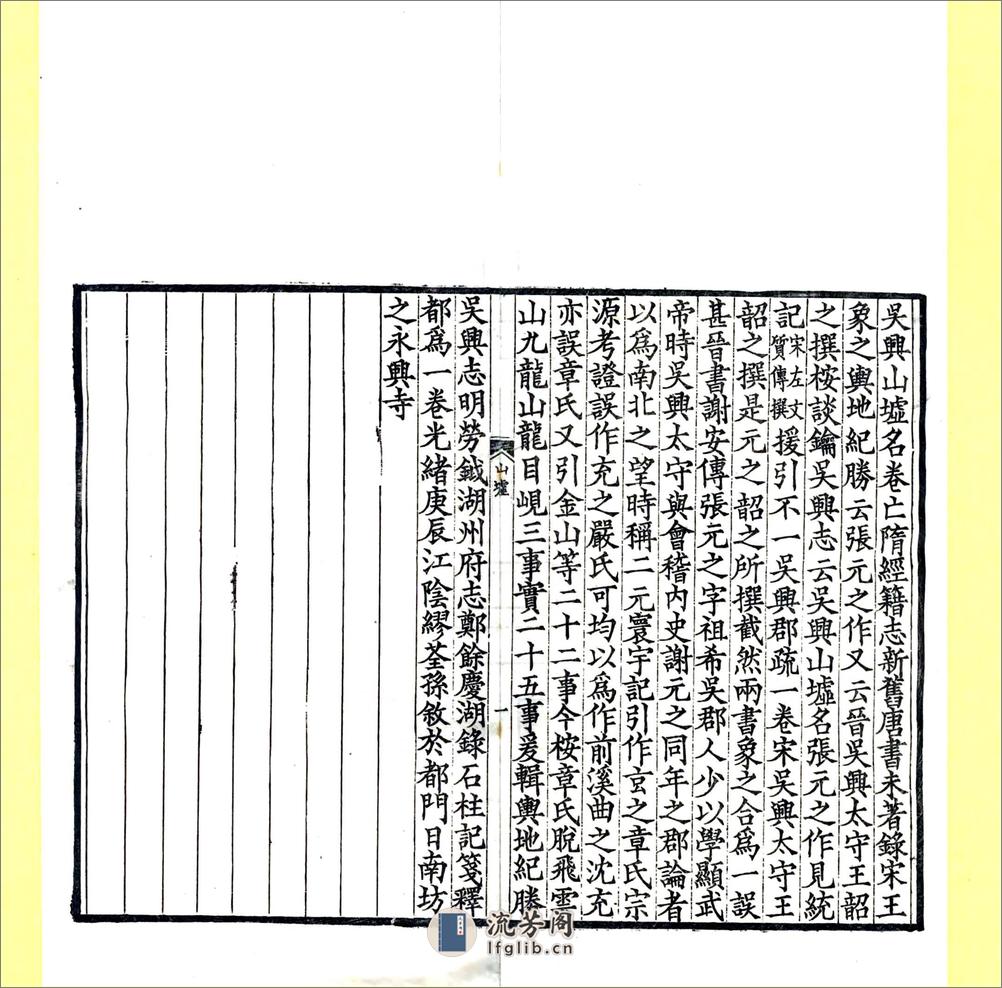 吳興山墟名卷亡隋經籍志新舊唐書未著錄宋王
象之輿地紀勝云張元之作又云晉吳興太守王韶
之撰桉談鑰吳興志云吳興山墟名張元之作見統
記宋左文質傳撰援引不一吳興郡疏一卷宋吳興太守王
韶之撰是元之韶之所撰截然兩書象之合爲一誤
甚晉書謝安傳張元之字祖希吳郡人少以學顯武
帝時吳興太守與會稽內史謝元之同年之郡論者
以爲南北之望時稱二元寰宇記引作玄之章氏宗
源考證誤作充之嚴氏可均以爲作前溪曲之沈充
亦誤章氏又引金山等二十二事今桉章氏脫飛雲
山九龍山龍目峴三事實二十五事爰輯輿地紀勝
山墟
一
吳興志明勞鉞湖州府志鄭餘慶湖錄石柱記箋釋
都爲一卷光緒庚辰江陰繆荃孫敘於都門日南坊
之永興寺
流芳阁
lfglib.cn